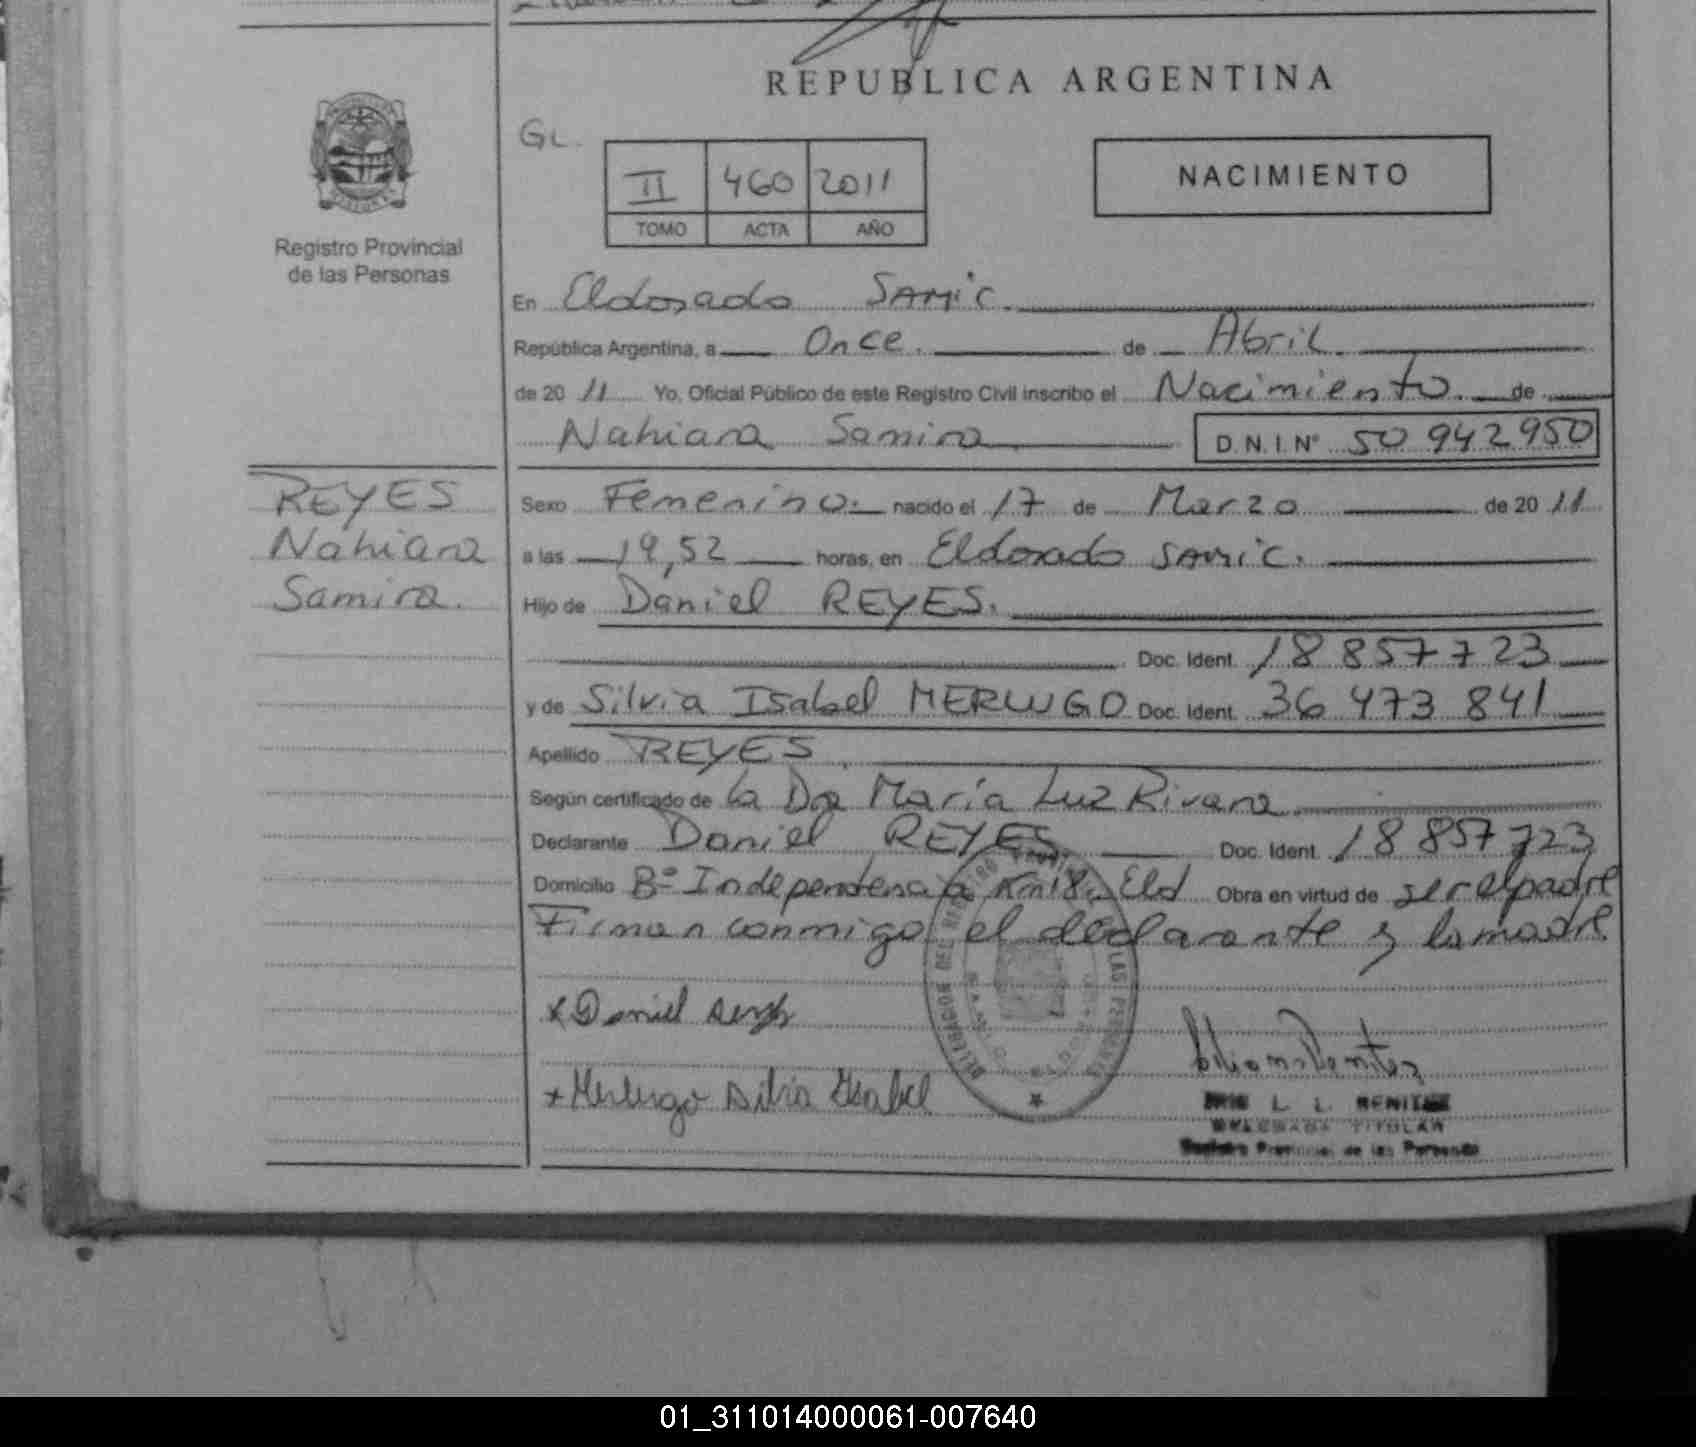 REPUBLICA ARGENTINA
GL.
II 460 2011
TOMO ACTA AÑO
NACIMIENTO
Registro Provincial
de las Personas
En Eldorado SAMIC.
República Argentina, a Once. de Abril.
de 20 11 Yo, Oficial Público de este Registro Civil inscribo el Nacimiento. de
Nahiara Samira D.N.I.N° 50 942950
REYES
Nahiara
Samira.
Sexo Femenino. nacido el 17 de Marzo de 20 11
a las 19,52 horas, en Eldorado SAMIC.
Hijo de Daniel REYES.
Doc. Ident. 18 857 723
y de Silvia Isabel MERLUGO Doc. Ident. 36 473 841
Apellido REYES.
Según certificado de la Dra María Luz Rivara
Declarante Daniel REYES Doc. Ident. 18 857 723
Domicilio B° Independencia Km 18. Eld Obra en virtud de ser el padre
Firman conmigo el declarante y la madre
DELEGACION DEL REGISTRO LAS PERSONAS
x Daniel
x Merlugo Silvia Isabel
L. L. BENITEZ
DELEGADA TITULAR
Registro Provincial de las Personas
01_311014000061-007640